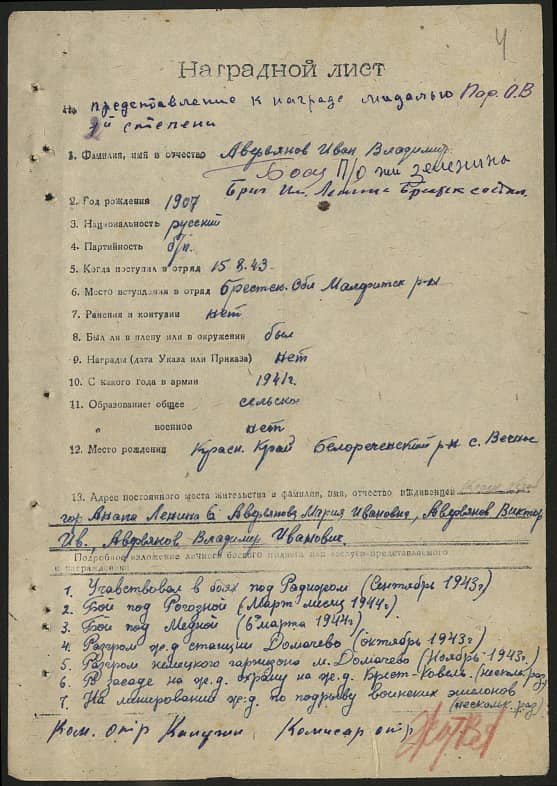 4
Наградной лист
На представление к награде медалью Пар. О.В
2й степени
1. Фамилия, имя и отчество Авдвянов Иван Владимир.
Боец П/о им
Бриг Им. Ленина Брестск
2. Год рождения 1907
3. Национальность русский
4. Партийность б/п.
5. Когда поступил в отряд 15 8.43.
6. Место вступления в отряд Брестск. Обл Малоритск р-н
7. Ранения и контузии нет
8. Был ли в плену или в окружении был
9. Награды (дата Указа или Приказа) нет
10. С какого года в армии 1941 г.
11. Образование: общее сельское
" военное нет
12. Место рождения Красн. Край Белореченский р-н с.
13. Адрес постоянного места жительства и фамилия, имя, отчество иждивенцев
гор Анапа Ленина 6 Авдвянова Мария Ивановна, Авдвянов Виктор
Ив., Авдвянов Владимир Иванович.
Подробное изложение личного боевого подвига или заслуги представляемого
к награждению
1. Участвовал в боях под (Сентябрь 1943г)
2. Бои под Рогозной (Март месяц 1944г)
3. Бои под Медной (6 марта 1944г)
4. Разгром ж.д станции Домачево (октябрь 1943г)
5. Разгром немецкого гарнизона м. Домачево (Ноябрь 1943г.)
6. В засаде на ж.д. охрану на ж.д. Брест-Ковель. (нескольк. раз)
7. На минировании ж.д. по подрыву воинских эшелонов
(нескольк. раз)
Ком. отр Комисар отр